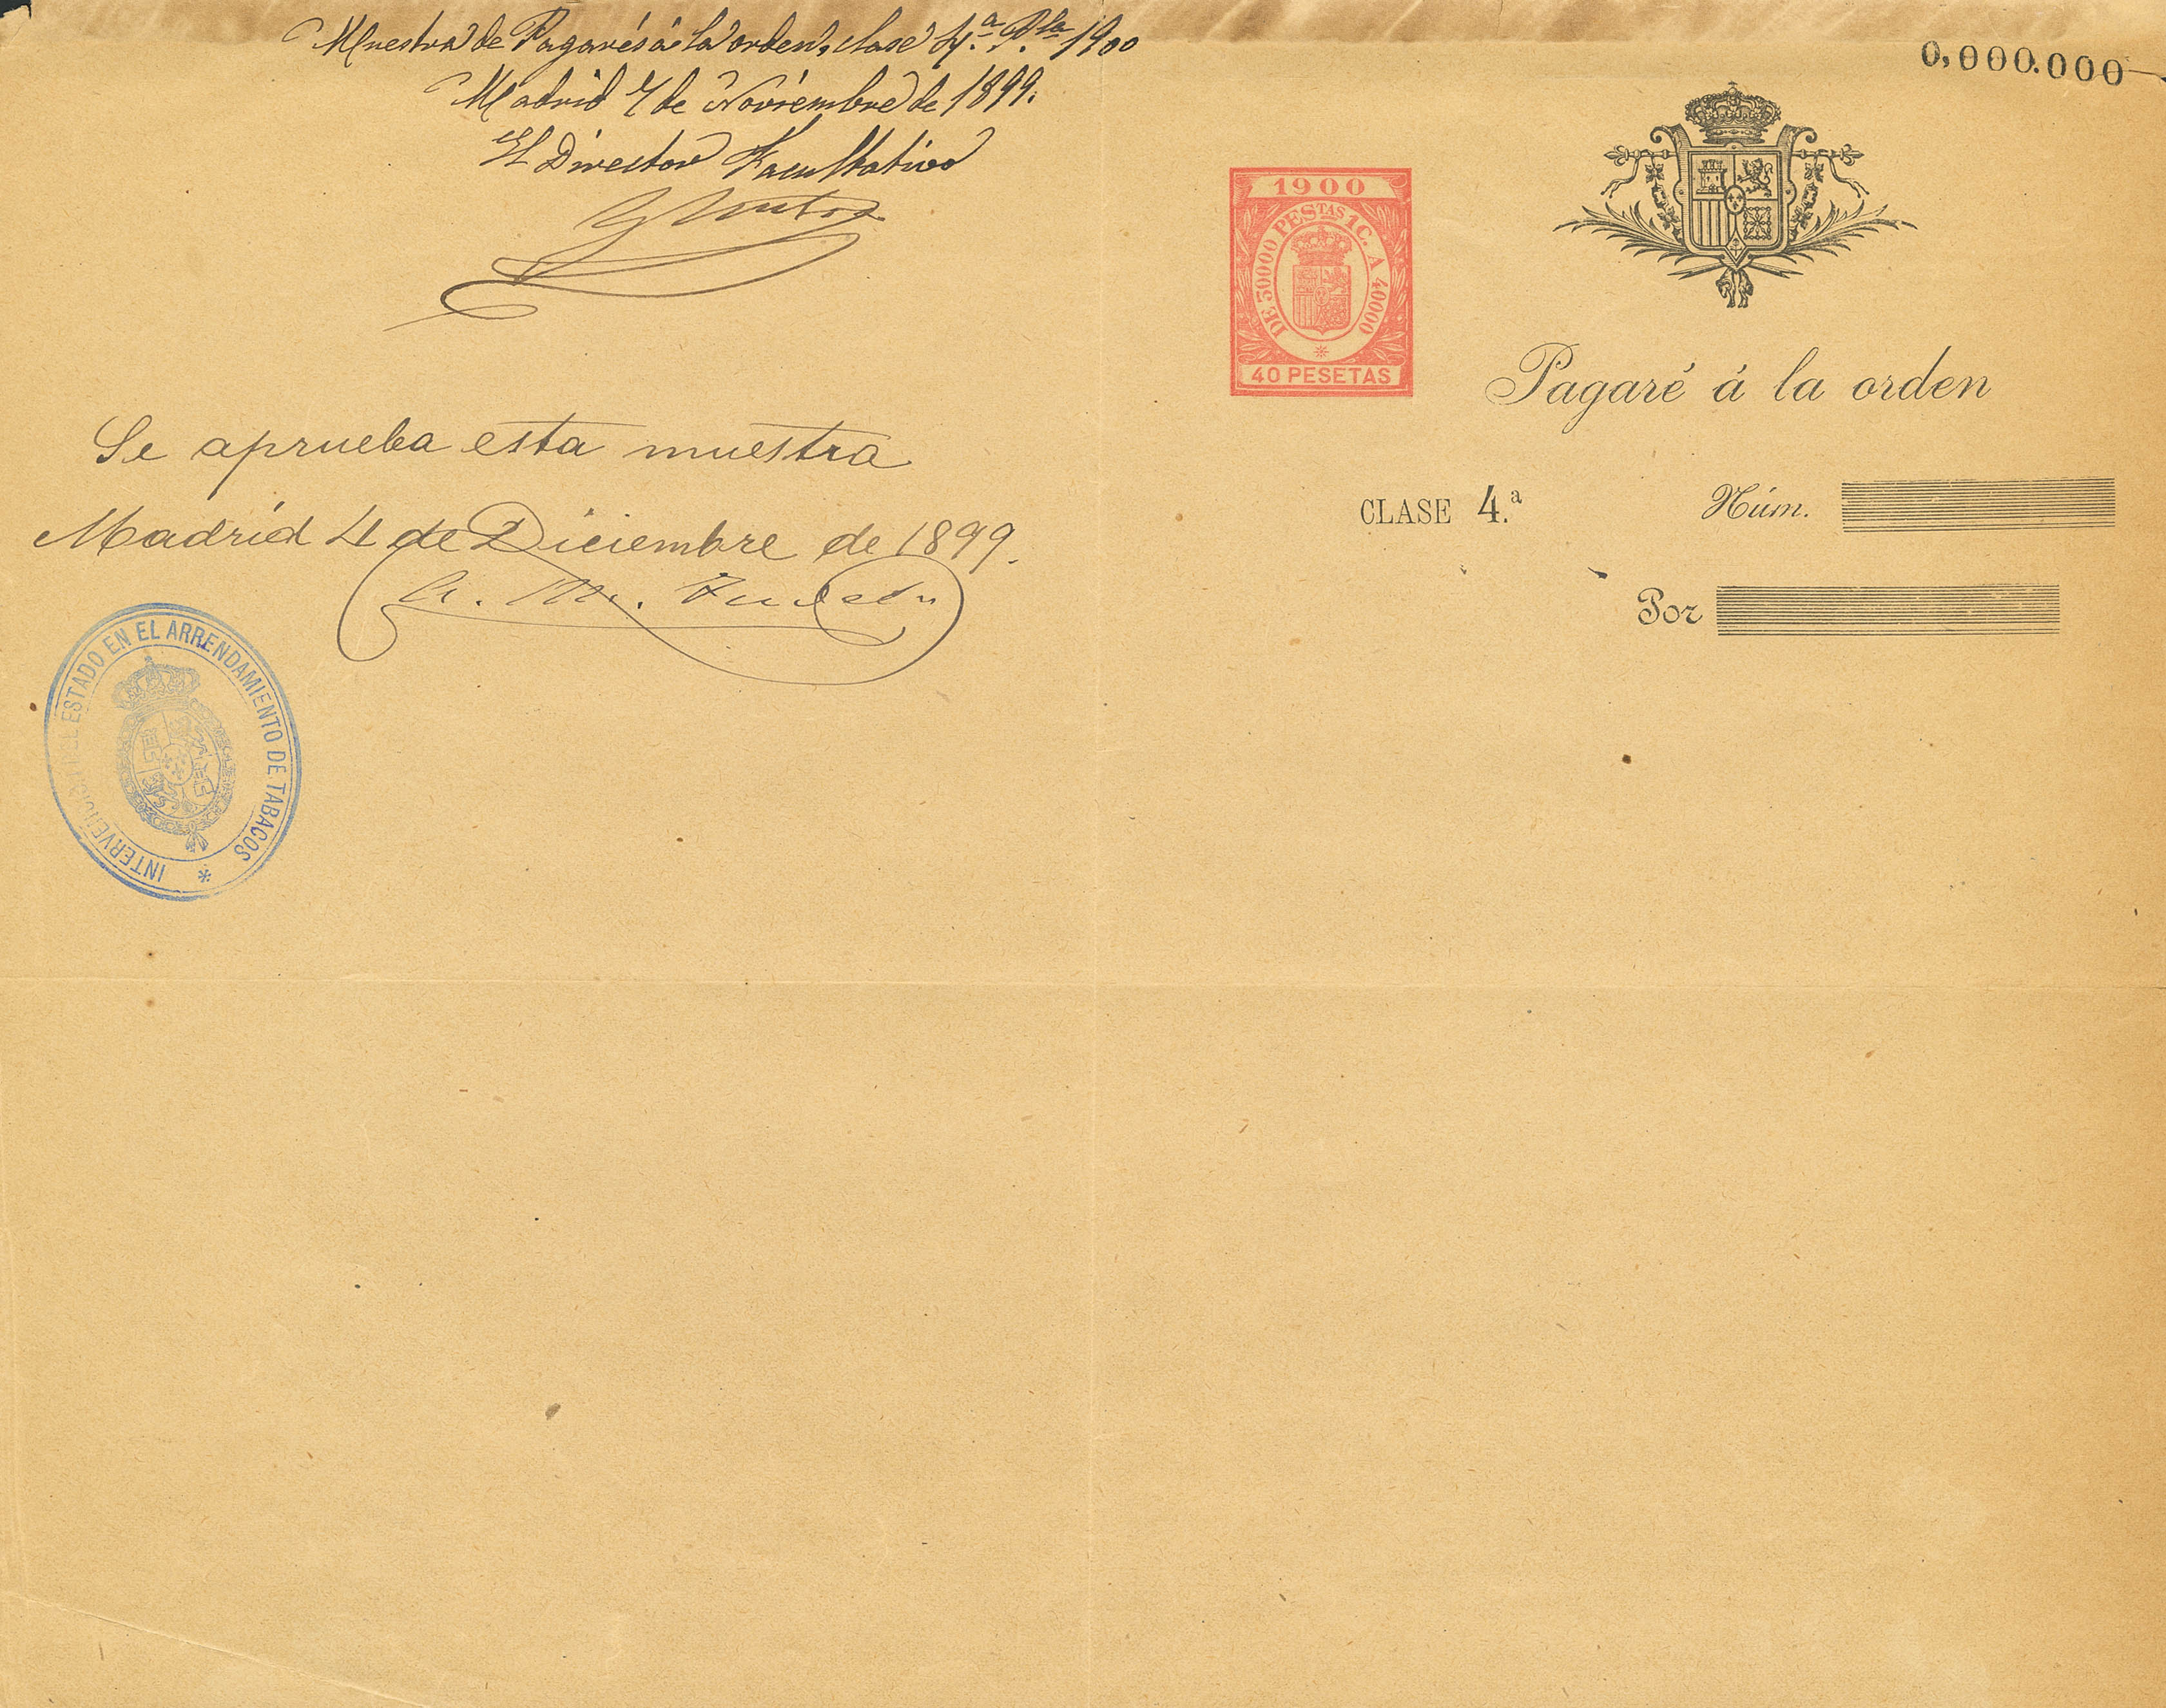 Muestra de Pagarés á la orden, clase 4.ª P.la 1900
Madrid 7 de Noviembre de 1899.
El Director Facultativo
Se aprueba esta muestra
Madrid 4 de Diciembre de 1899.
INTERVENCION DEL ESTADO EN EL ARRENDAMIENTO DE TABACOS
0,000.000
1900
DE 30000 PESTAS 1C. A 40000
40 PESETAS
Pagaré á la orden
CLASE 4.ª Núm.
Por